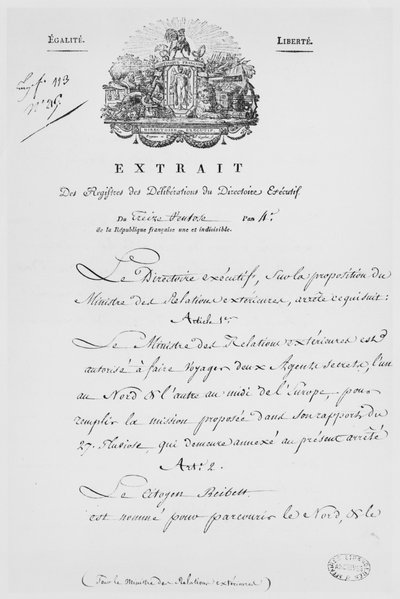 ÉGALITÉ.
LIBERTÉ.
113
DIRECTOIRE EXÉCUTIF
EXTRAIT
Des Registres des Délibérations du Directoire Exécutif.
Du Treize Ventose l'an 4.e
de la République française une et indivisible.
Le Directoire exécutif, Sur la proposition du
Ministre des Relations extérieures, arrête ce qui suit:
Article 1.er
Le Ministre des Relations extérieures est
autorisé à faire Voyager deux Agents secrets, l'un
au Nord & l'autre au midi de l'Europe, pour
remplir la mission proposée dans son rapport du
27. Pluviose, qui demeure annexé au présent arrêté
Art: 2.
Le Citoyen Reibelt
est nommé pour parcourir le Nord, & le
(Pour le Ministre des Relations extérieures)